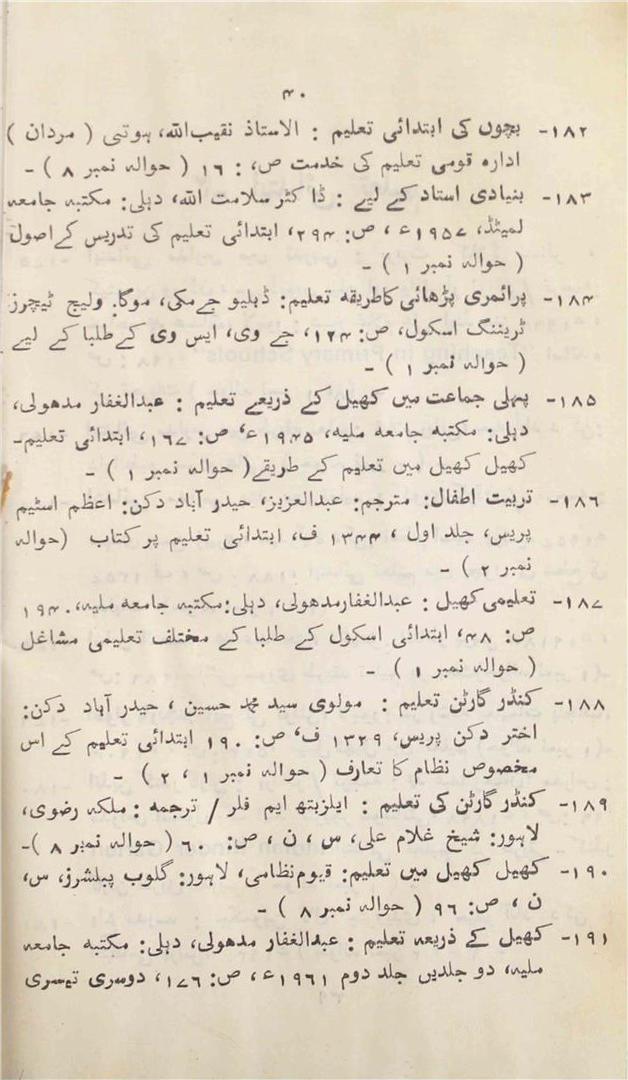 ۴۰
۱۸۲- بچوں کی ابتدائی تعلیم : الاستاذ نقیب اللہ، ہوتی ( مردان )
ادارہ قومی تعلیم کی خدمت ص، : ۱۶ ( حوالہ نمبر ۸ ) -
۱۸۳- بنیادی استاد کے لیے : ڈاکٹر سلامت اللہ، دہلی: مکتبہ جامعہ
لمیٹڈ، ۱۹۵۷ء ، ص: ۲۹۴، ابتدائی تعلیم کی تدریس کے اصول
( حوالہ نمبر ۱ ) -
۱۸۴- پرائمری پڑھائی کا طریقہ تعلیم: ڈبلیو جے مکی، موگا. ولیج ٹیچرز
ٹریننگ اسکول، ص: ۱۲۴، جے وی، ایس وی کے طلبا کے لیے
( حوالہ نمبر ۱ ) -
۱۸۵- پہلی جماعت میں کھیل کے ذریعے تعلیم : عبدالغفار مدھولی،
دہلی: مکتبہ جامعہ ملیہ، ۱۹۴۵ء، ص: ۱۶۷، ابتدائی تعلیم-
کھیل کھیل میں تعلیم کے طریقے( حوالہ نمبر ۱ ) -
۱۸۶- تربیت اطفال: مترجم: عبدالعزیز، حیدر آباد دکن: اعظم اسٹیم
پریس، جلد اول ، ۱۳۴۴ ف، ابتدائی تعلیم پر کتاب (حوالہ
نمبر ۲ ) -
۱۸۷- تعلیمی کھیل : عبدالغفار مدھولی، دہلی: مکتبہ جامعہ ملیہ، ۱۹۴۰
ص: ۴۸، ابتدائی اسکول کے طلبا کے مختلف تعلیمی مشاغل
( حوالہ نمبر ۱ ) -
۱۸۸- کنڈر گارٹن تعلیم : مولوی سید محمد حسین ، حیدر آباد دکن:
اختر دکن پریس، ۱۳۲۹ ف، ص: ۱۹۰ ابتدائی تعلیم کے اس
مخصوص نظام کا تعارف ( حوالہ نمبر ۱ ، ۲ ) -
۱۸۹- کنڈر گارٹن کی تعلیم : ایلزبتھ ایم فلر / ترجمہ : ملکہ رضوی،
لاہور: شیخ غلام علی، س ، ن ، ص: ۶۰ ( حوالہ نمبر ۸ )-
۱۹۰- کھیل کھیل میں تعلیم: قیوم نظامی، لاہور: گلوب پبلشرز، س،
ن ، ص: ۹۶ ( حوالہ نمبر ۸ ) -
۱۹۱- کھیل کے ذریعہ تعلیم : عبدالغفار مدھولی، دہلی: مکتبہ جامعہ
ملیہ، دو جلدیں جلد دوم ۱۹۶۱ء، ص: ۱۷۶، دوسری تیسری